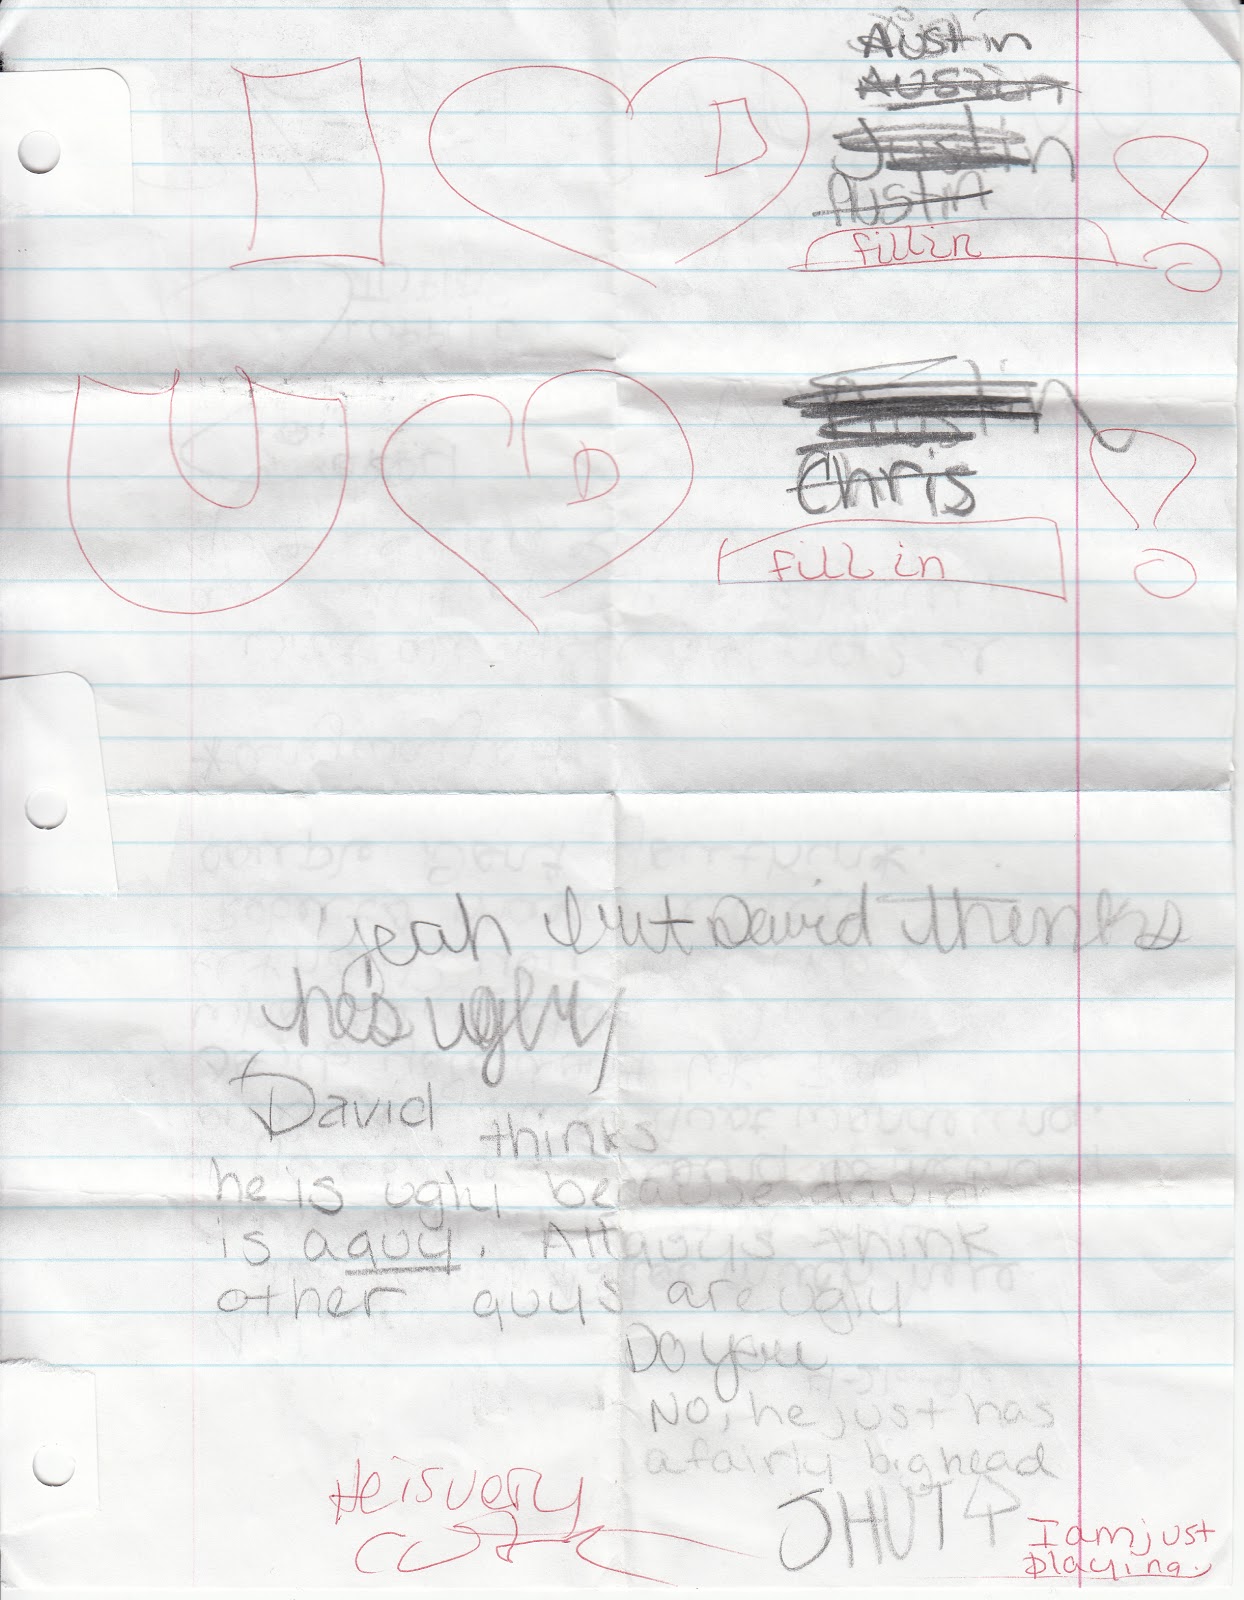 Austin
Austin
Justin
Austin
I D
fill in
Chris
U D
fill in
yeah but David thinks
he's ugly
David thinks
he is ugly because david
is a guy. All guys think
other guys are ugly
Do you
No, he just has
a fairly big head
He is very
SHUT
I am just
playing.